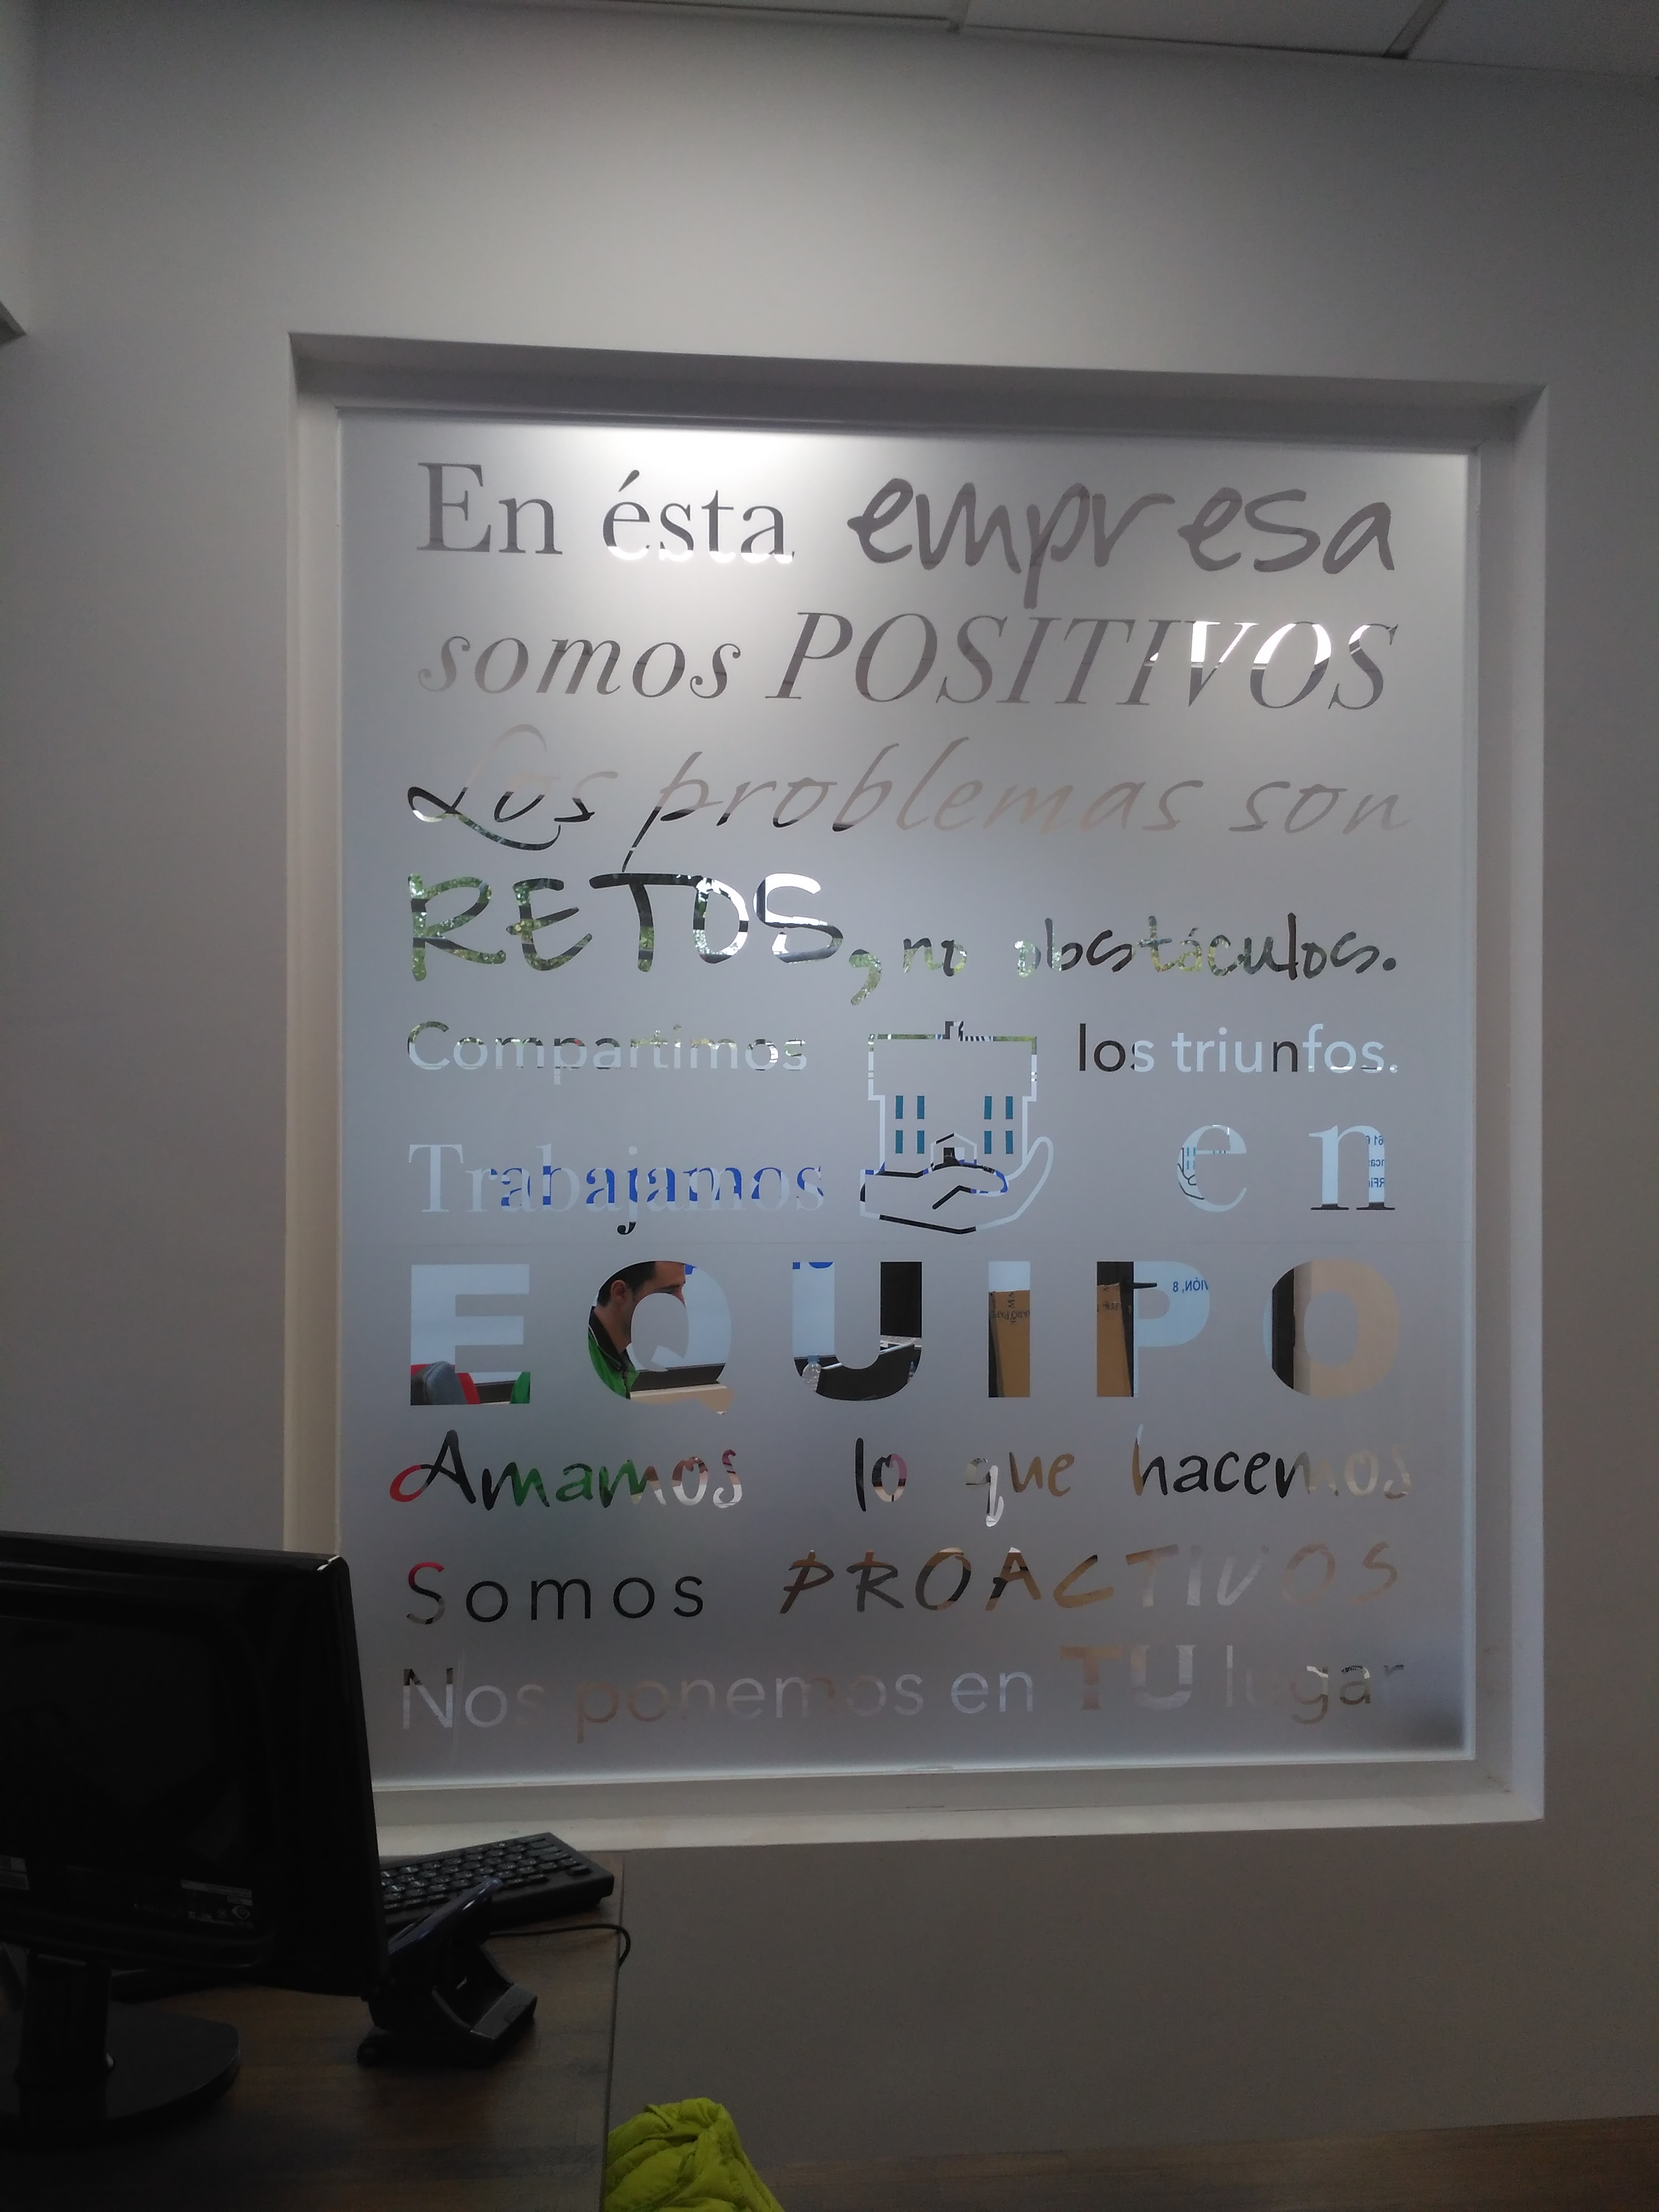 En ésta empresa
somos POSITIVOS
Los problemas son
RETOS, no obstáculos.
Compartimos los triunfos.
Trabajamos en
EQUIPO
Amamos lo que hacemos
Somos PROACTIVOS
Nos ponemos en TU lugar